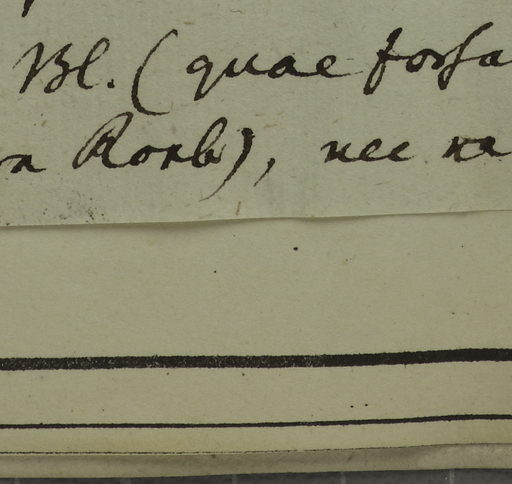 Bl. (quae forsa
n Roxb), nec na